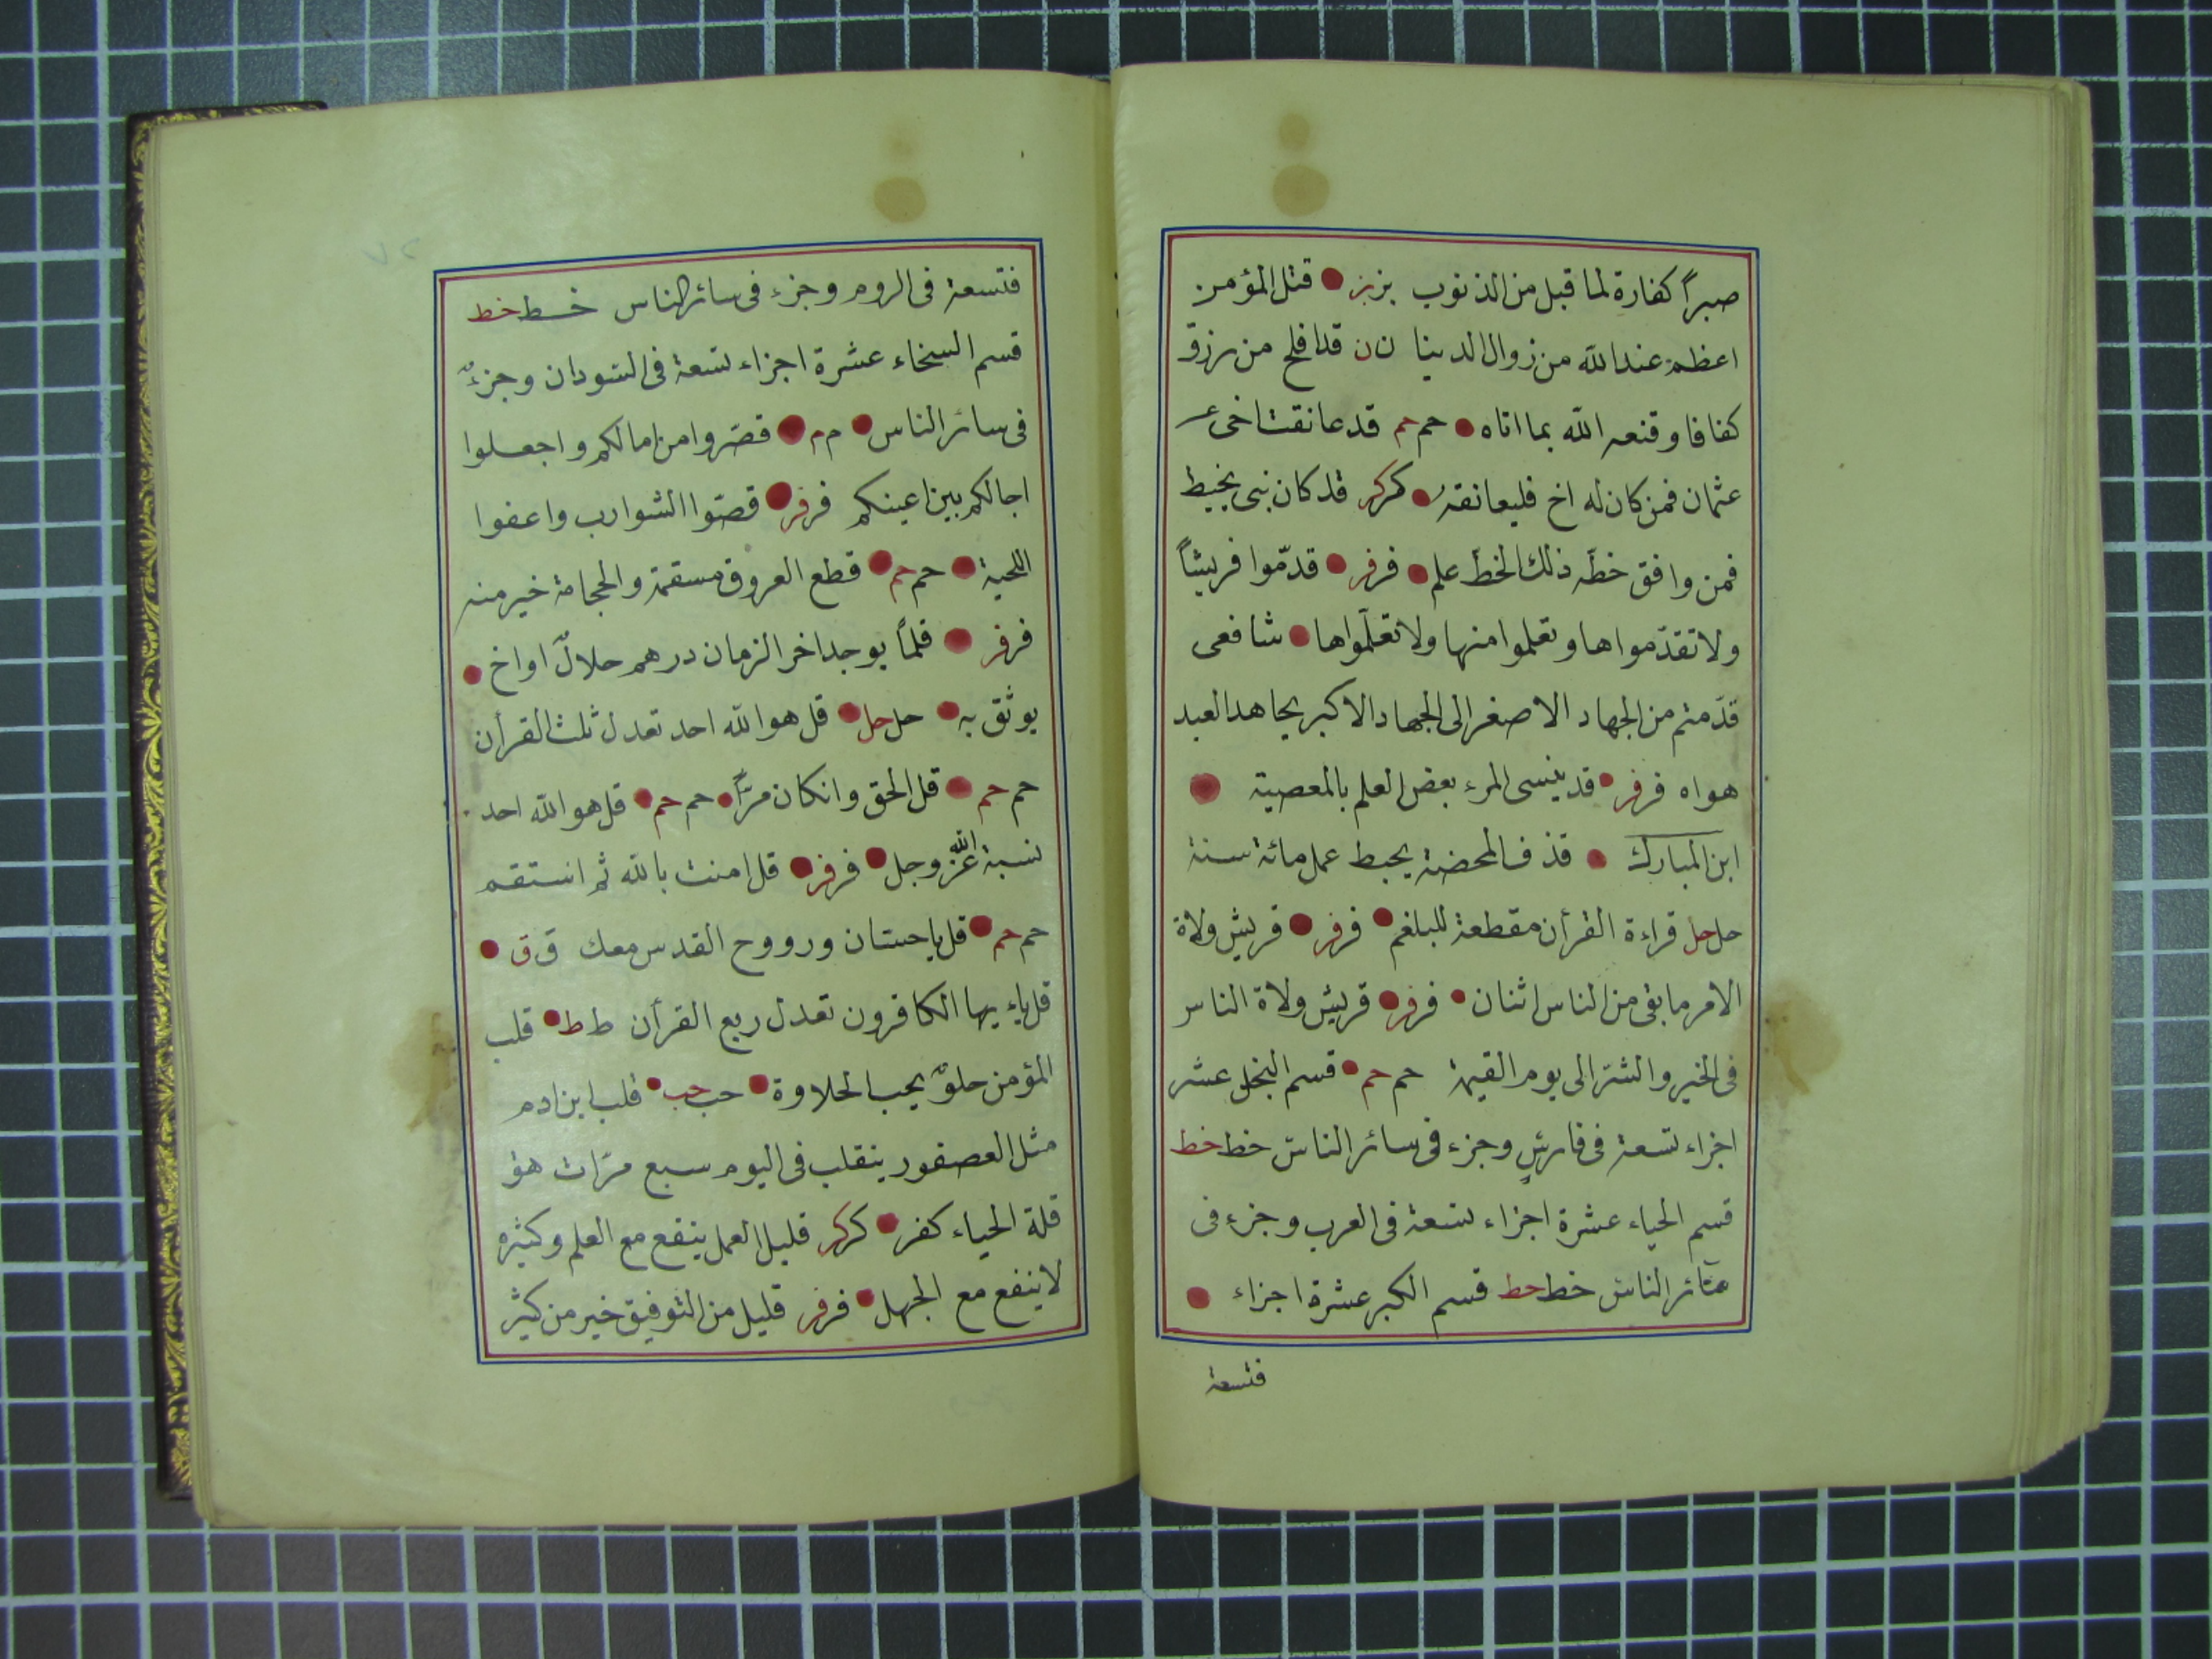 صبراً كفارة لما قبل من الذنوب بز بز قتل المؤمن
اعظم عند الله من زوال الدينا ن ن قد افلح من رزق
كفافا وقنعه الله بما اتاه حم حم قد عانقت اخى
عثمان فمن كان له اخ فليعانقه كر كر قد كان نبى يخيط
فمن وافق خطّه ذلك الخطّ علم فر فر قدّموا قريشاً
ولا تقدّمواها وتعلموا منها ولا تعلّمواها شافعى
قدّمتم من الجهاد الاصغر الى الجهاد الاكبر يجاهد العبد
هواه فر فر قد ينسى المرء بعض العلم بالمعصية
ابن المبارك قذف المحضنة يحبط عمل مائة سنة
حل حل قراءة القرأن مقطعة للبلغم فر فر قريش ولاة
الامر ما بقى من الناس اثنان فر فر قريش ولاة الناس
فى الخير والشرّ الى يوم القيمة حم حم قسم البخل عشر
اجزاء تسعة فى فارس وجزء فى سائر الناس خط خط
قسم الحياء عشرة اجزاء تسعة فى العرب وجزء فى
سائر الناس خط خط قسم الكبر عشرة اجزاء
فتسعة
فتسعة فى الروم وجزء فى سائر الناس خط خط
قسم السخاء عشرة اجزاء تسعة فى السودان وجزءٌ
فى سائر الناس م م قصّروا من امالكم واجعلوا
اجالكم بين اعينكم فر فر قصّوا الشوارب واعفوا
اللحية حم حم قطع العروق مسقمة والحجامة خير منه
فر فر قلمّا يوجد اخر الزمان درهم حلالٌ او اخ
يوثق به حل حل قل هو الله احد تعدل ثلث القرأن
حم حم قل الحق وانكان مرّاً حم حم قل هو الله احد
نسبة الله عزّ وجل فر فر قل امنت بالله ثم استقم
حم حم قل ياحسّان ورووح القدس معك ق ق
قل ياءيها الكافرون تعدل ربع القرأن ط ط قلب
المؤمن حلوٌ يحب الحلاوة حب حب قلب ابن ادم
مثل العصفور ينقلب فى اليوم سبع مرّات هؤ
قلة الحياء كفر كر كر قليل العمل ينفع مع العلم وكثيره
لا ينفع مع الجهل فر فر قليل من التوفيق خير من كثير